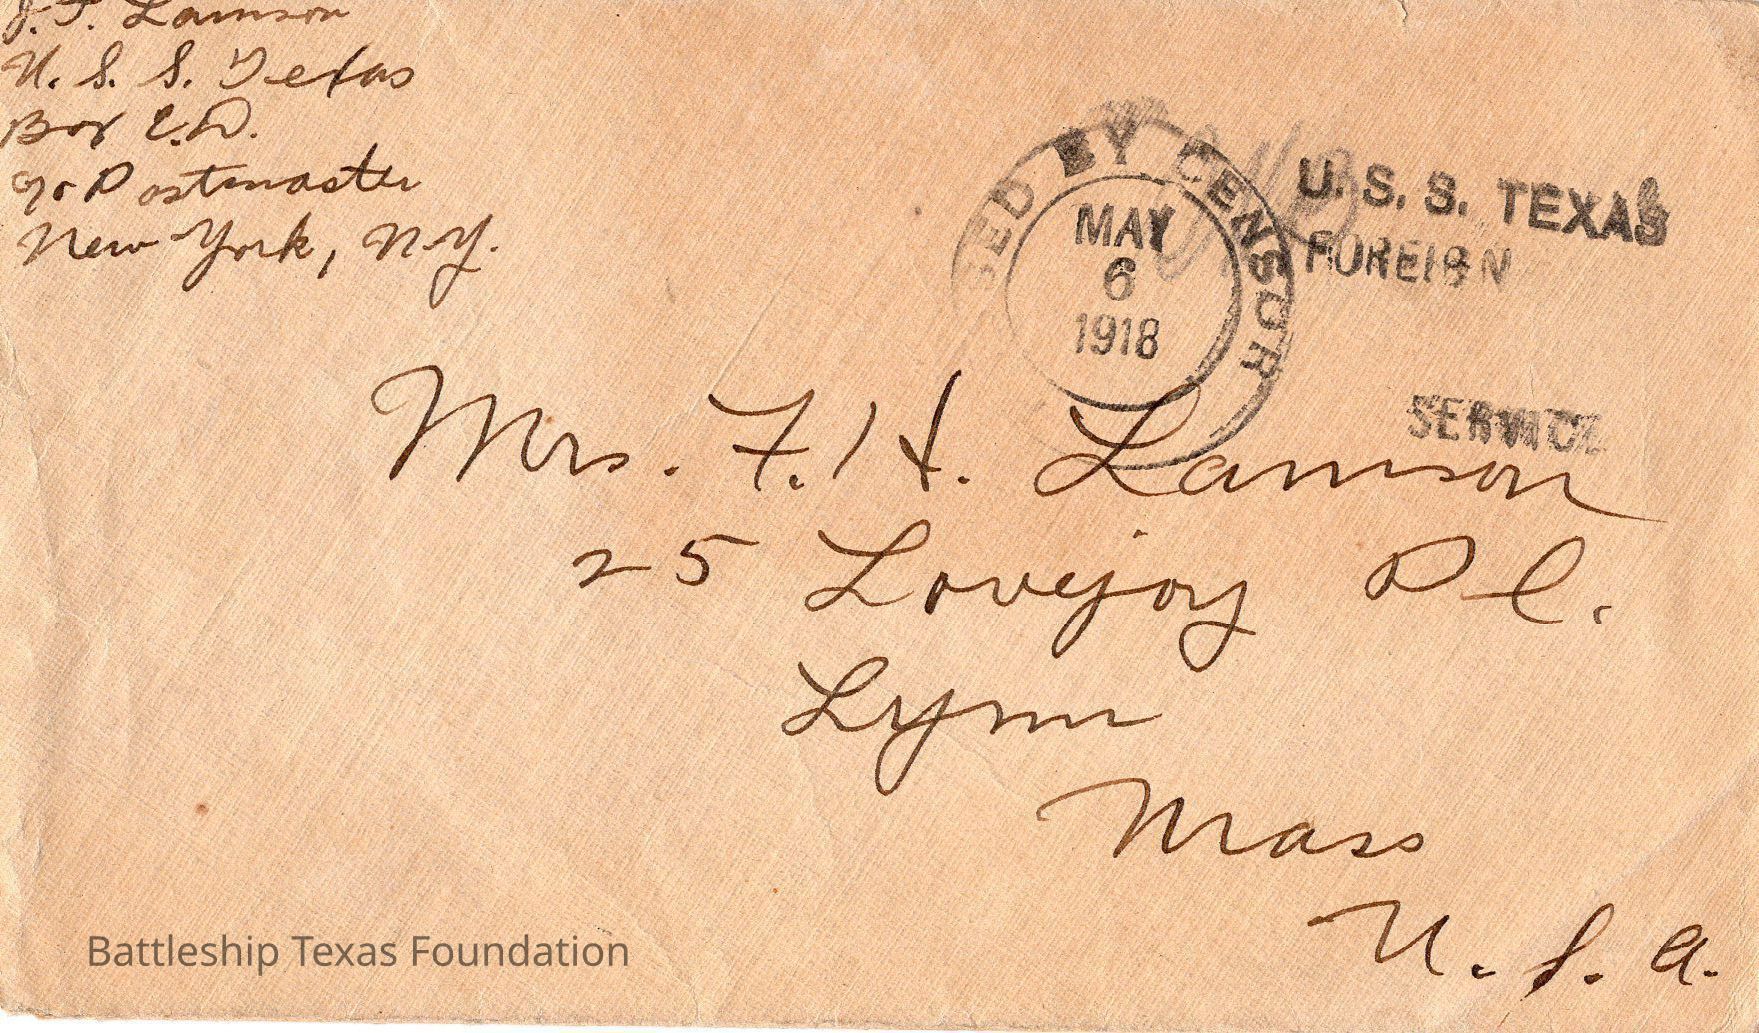 J. F. Lamson
U. S. S. Texas
Box E.D.
℅ Postmaster
New York, N.Y.
SED BY CENSOR
MAY
6
1918
U. S. S. TEXAS
FOREIGN
SERVICE
Mrs. F. H. Lamson
25 Lovejoy Pl.
Lynn
Mass
U. S. A.
Battleship Texas Foundation